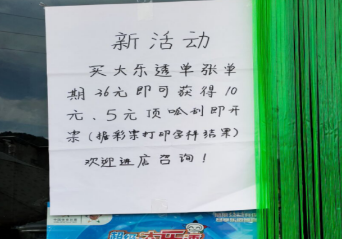 新活动
买大乐透单张单
期36元即可获得10
元、5元顶呱刮即开
票(据彩票打印字样结果)
欢迎进店咨询!